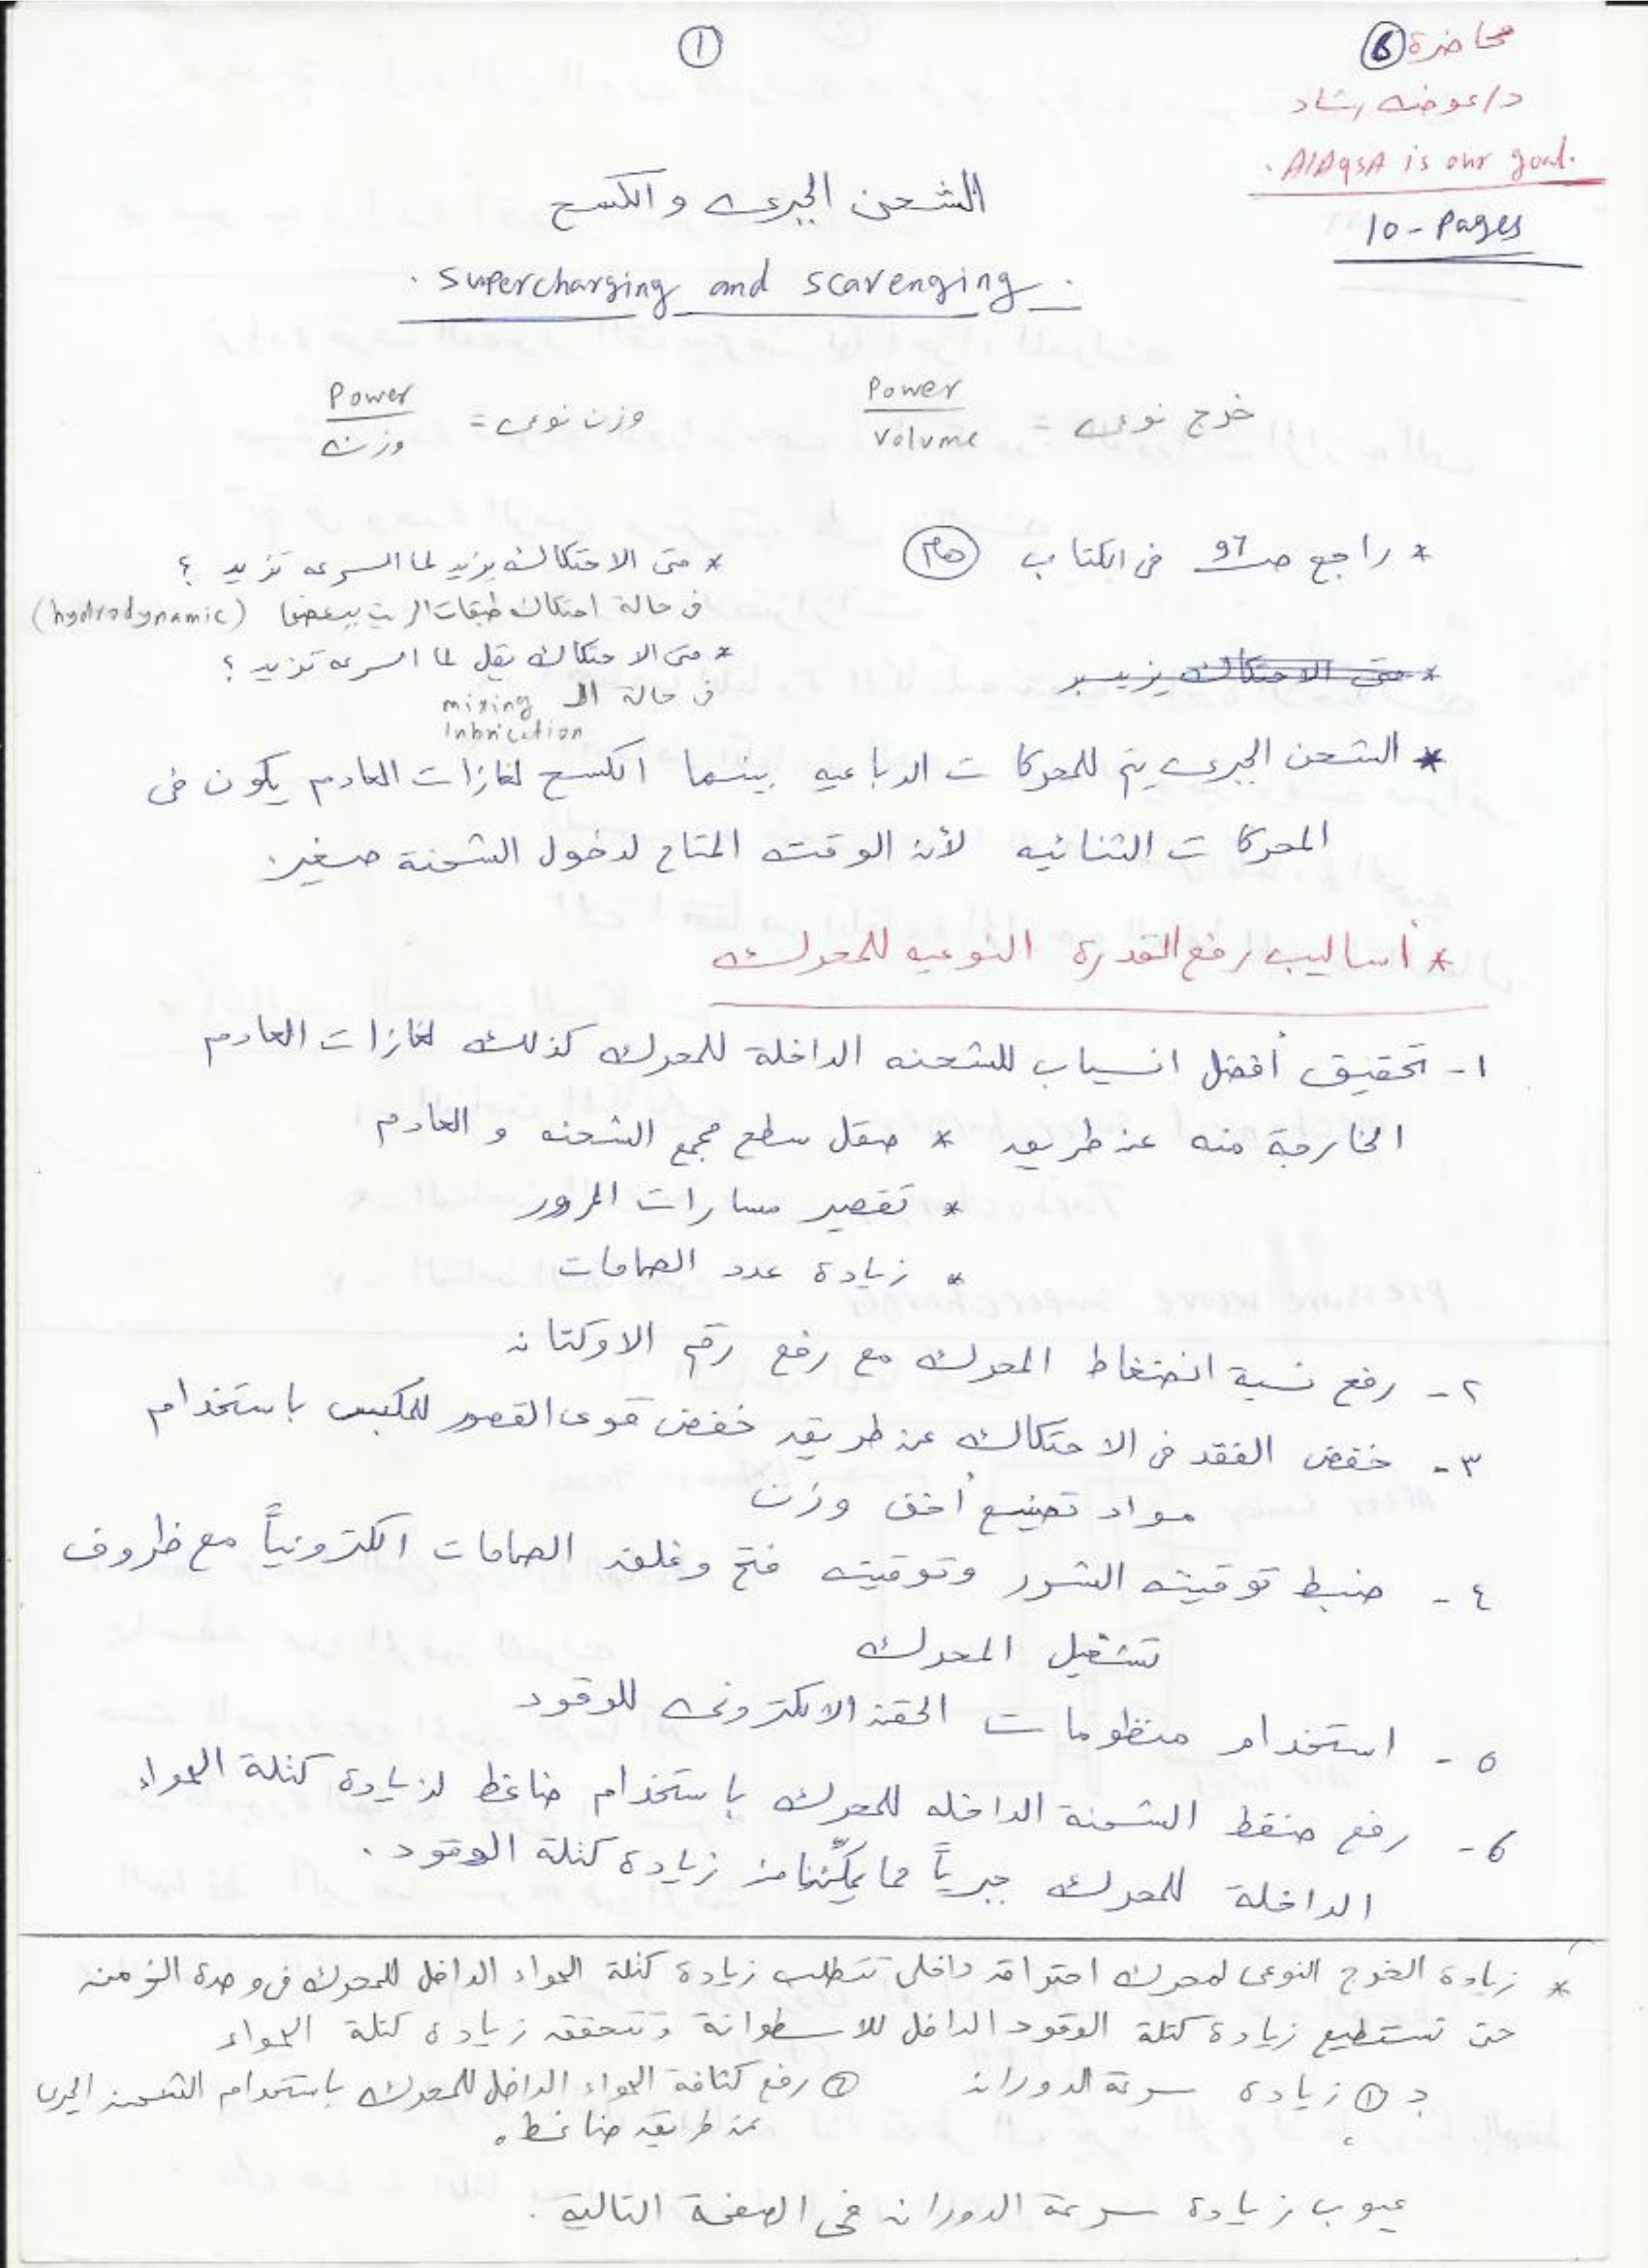 ①
محاضرة ⑧
د/عوض رشاد
AlAqsA is our goal.
10-Pages
الشحن الجبرى والكسح
Supercharging and scavenging
خرج نوعى = Power / Volume
وزن نوعى = Power / وزن
* راجع صـ 97 فى الكتاب هام
* متى الاحتكاك يزيد لما السرعه تزيد ؟
فى حالة احتكاك طبقات الزيت ببعضها (hydrodynamic)
* متى الاحتكاك يقل لما السرعه تزيد ؟
* متى الاحتكاك يزيد
فى حالة الـ mixing
lubrication
* الشحن الجبرى يتم للمحركات الرباعيه بينما الكسح لغازات العادم يكون فى
المحركات الثنائيه لأن الوقت المتاح لدخول الشحنة صغير.
* أساليب رفع القدرة النوعيه للمحرك
١- تحقيق أفضل انسياب للشحنه الداخلة للمحرك كذلك لغازات العادم
الخارجة منه عن طريق * صقل سطح مجمع الشحنه و العادم
* تقصير مسارات المرور
* زيادة عدد الصمامات
٢- رفع نسبة انضغاط المحرك مع رفع رقم الاوكتان
٣- خفض الفقد فى الاحتكاك عن طريق خفض قوى القصور للمكبس باستخدام
مواد تصنيع أخف وزن
٤- ضبط توقيت الشرر وتوقيت فتح وغلق الصمامات الكترونياً مع ظروف
تشغيل المحرك
٥- استخدام منظومات الحقن الالكترونى للوقود
6- رفع ضغط الشحنة الداخله للمحرك باستخدام ضاغط لزيادة كتلة الهواء
الداخلة للمحرك جبرياً مما يمكّننا من زيادة كتلة الوقود.
* زيادة الخرج النوعى لمحرك احتراق داخلى تتطلب زيادة كتلة الهواء الداخل للمحرك فى وحدة الزمن
حتى نستطيع زيادة كتلة الوقود الداخل للاسطوانة وتتحقق زيادة كتلة الهواء
بـ ① زيادة سرعة الدوران ② رفع كثافة الهواء الداخل للمحرك باستخدام الشحن الجبرى
عن طريق ضاغط.
عيوب زيادة سرعة الدوران فى الصفحة التالية.